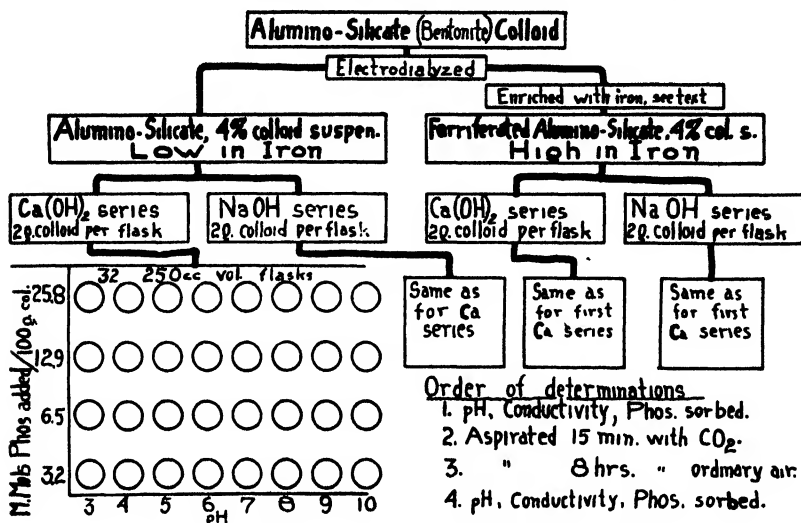 Alumino-Silicate (Bentonite) Colloid
Electrodialyzed
Enriched with iron, see text
Alumino-Silicate, 4% colloid suspen.
Low in Iron
Ferriferated Alumino-Silicate, 4% col. s.
High in Iron
Ca(OH)₂ series
2g. colloid per flask
NaOH series
2g. colloid per flask
Ca(OH)₂ series
2g. colloid per flask
NaOH series
2g. colloid per flask
32 250cc vol. flasks
M.Mols Phos added/100g. col.
25.8
12.9
6.5
3.2
3 4 5 6 7 8 9 10
pH
Same as
for Ca
series
Same as
for first
Ca series
Same as
for first
Ca series
Order of determinations
1. pH, Conductivity, Phos. sorbed.
2. Aspirated 15 min. with CO₂.
3. " 8 hrs. " ordinary air.
4. pH, Conductivity, Phos. sorbed.